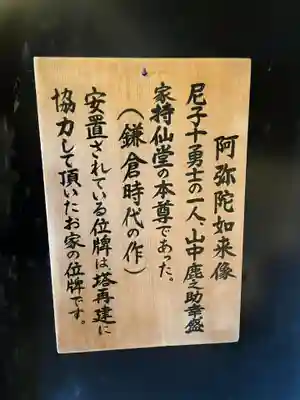 阿弥陀如来像
尼子十勇士の一人、山中鹿之助幸盛
家持仙堂の本尊であった。
（鎌倉時代の作）
安置されている位牌は塔再建に
協力して頂いたお家の位牌です。